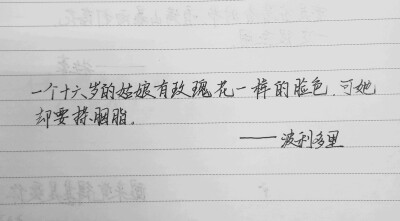 一个十六岁的姑娘有玫瑰花一样的脸色,可她
却要搽胭脂。
——波利多里